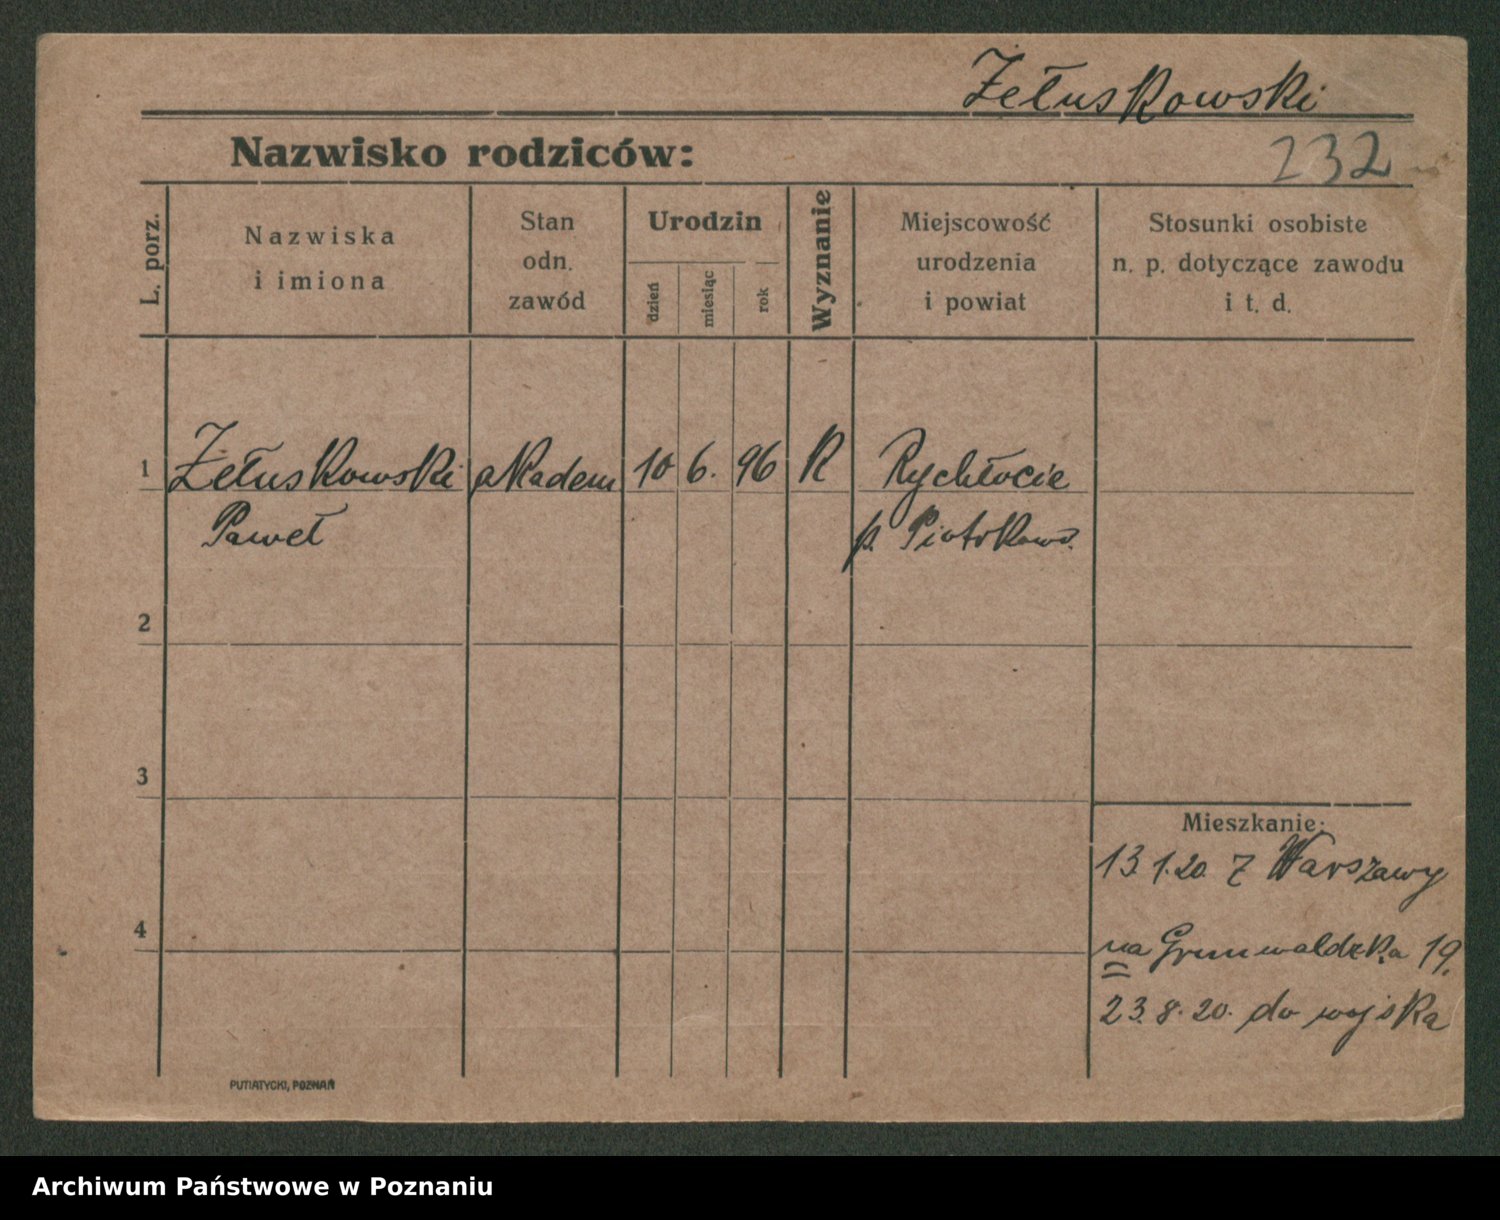 Żełuskowski
Nazwisko rodziców:
232
L. porz.
Nazwiska
i imiona
Stan
odn.
zawód
Urodzin
dzień
miesiąc
rok
Wyznanie
Miejscowość
urodzenia
i powiat
Stosunki osobiste
n. p. dotyczące zawodu
i t. d.
1 Żełuskowski akadem 10 6. 96 R Rychłocie
Paweł p. Piotrkows.
2
3
Mieszkanie:
13.1.20. z Warszawy
4
na Grunwaldzka 19.
23.8.20. do wojska
PUTIATYCKI, POZNAŃ
Archiwum Państwowe w Poznaniu